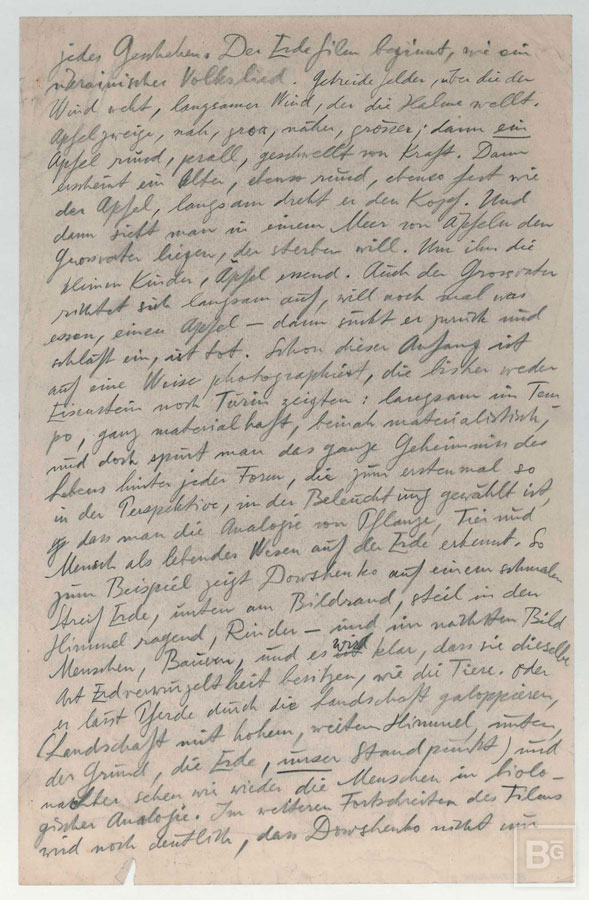 jedes Geschehen. Der Erdefilm beginnt, wie ein
ukrainisches Volkslied. Getreidefelder, über die der
Wind weht, langsamer Wind, der die Halme wellt.
Apfelzweige, nah, gross, näher, grösser; dann ein
Apfel rund, prall, geschwellt von Kraft. Dann
erscheint ein Alter, ebenso rund, ebenso fest wie
der Apfel, langsam dreht er den Kopf. Und
dann sieht man in einem Meer von Äpfeln den
Grossvater liegen, der sterben will. Um ihn die
kleinen Kinder, Äpfel essend. Auch der Grossvater
richtet sich langsam auf, will noch mal was
essen, einen Apfel – dann sinkt er zurück und
schläft ein, ist tot. Schon dieser Anfang ist
auf eine Weise photographiert, die bisher weder
Eisenstein noch Turin zeigten: langsam im Tem-
po, ganz materialhaft, beinah materialistisch,
und doch spürt man das ganze Geheimniss des
Lebens hinter jeder Form, die zum erstenmal so
in der Perspektive, in der Beleuchtung gewählt ist,
dass man die Analogie von Pflanze, Tier und
Mensch als lebendes Wesen auf der Erde erkennt. So
zum Beispiel zeigt Dowshenko auf einem schmalen
Streif Erde, unten am Bildrand, steil in den
Himmel ragend, Rinder – und im nächsten Bild
Menschen, Bauern, und es wird klar, dass sie dieselbe
Art Erdverwurzeltheit besitzen, wie die Tiere. Oder
er lässt Pferde durch die Landschaft galoppieren,
(Landschaft mit hohem, weitem Himmel, unten,
der Grund, die Erde, unser Standpunkt) und
nachher sehen wir wieder die Menschen in biolo-
gischer Analogie. Im weiteren Fortschreiten des Films
wird noch deutlich, dass Dowshenko nicht nur
BG